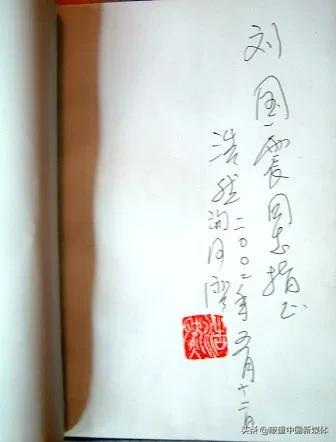 刘国震同志指正
二〇〇二年五月十二日
浩然
头条 @瞭望中国新媒体